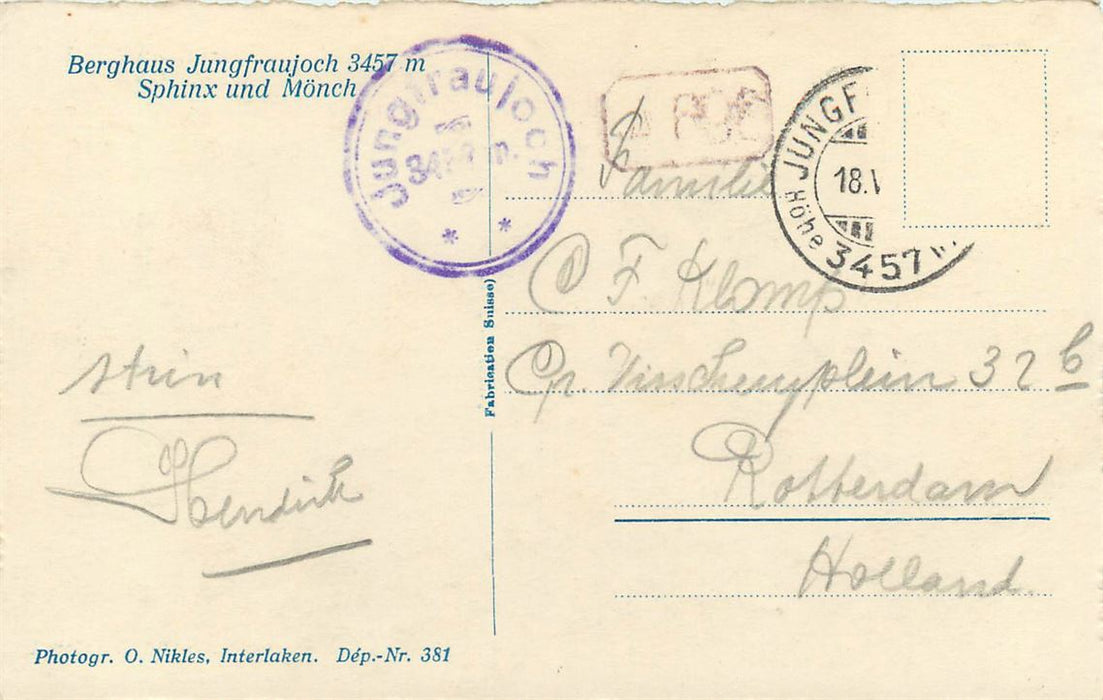 Berghaus Jungfraujoch 3457 m
Sphinx und Mönch
Jungfraujoch
* *
JUNGF
18.V
Höhe 3457 m
Familie
C F. Klomp
Cp. Visscherplein 32 b
Rotterdam
Holland.
Fabrication Suisse)
Hendrik
Photogr. O. Nikles, Interlaken. Dép.-Nr. 381